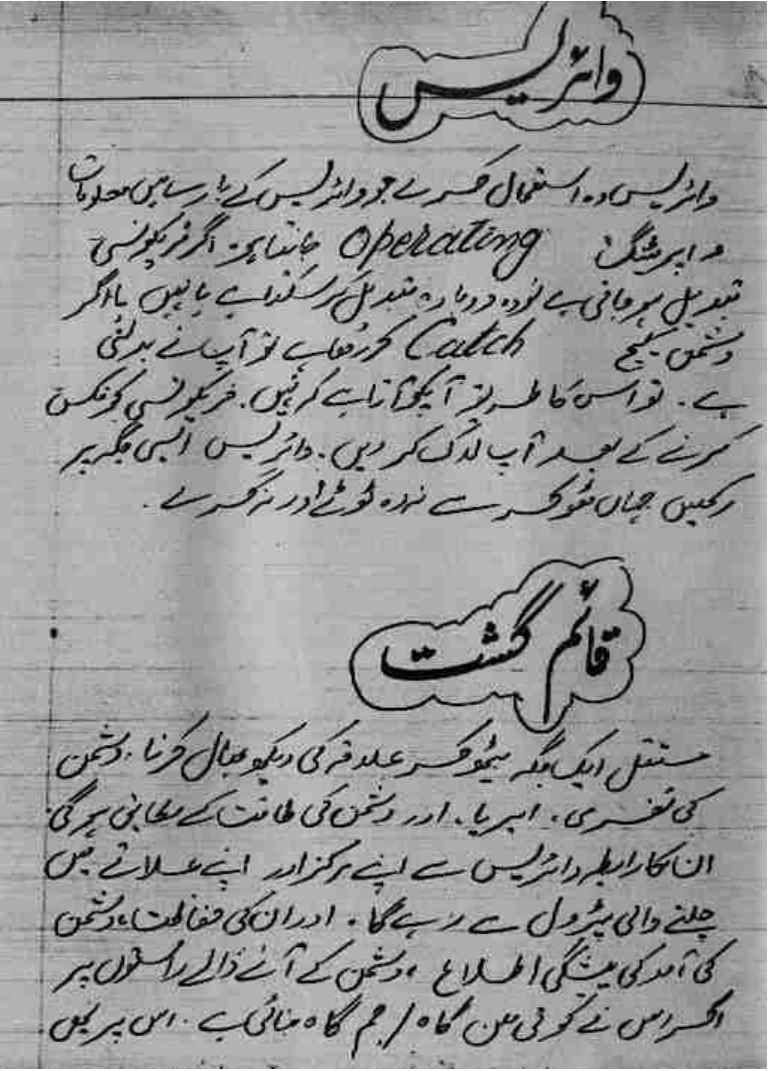 وائرلیس
وائرلیس وہ استعمال کرے جو وائرلیس کے بارے میں معلومات
و اپریٹنگ Operating جانتا ہو۔ اگر فریکونسی
تبدیل ہو جاتی ہے تو وہ دوبارہ تبدیل کر سکتا ہے یا نہیں یا اگر
دشمن کیچ Catch کر رہا ہے تو آپ نے بدلنی
ہے۔ تو اس کا طریقہ آپکو آتا ہے کہ نہیں۔ فریکونسی کو فکس
کرنے کے بعد آپ لاک کر دیں۔ وائرلیس ایسی جگہ پر
رکھیں جہاں ٹھوکر سے نہ وہ ٹوٹے اور نہ گرے۔
قائم گشت
مستقل ایک جگہ بیٹھ کر علاقہ کی دیکھ بھال کرنا۔ دشمن
کی نفری، ایریا، اور دشمن کی طاقت کے مطابق ہو گی
ان کا رابطہ وائرلیس سے اپنے مرکز اور اپنے علاقے میں
چلنے والی پٹرول سے رہے گا۔ اور ان کی حفاظت، دشمن
کی آمد کی پیشگی اطلاع، دشمن کے آنے والے راستوں پر
اگر اس نے کوئی گاہ / گاہ بنائی ہے۔ اس پر بھی